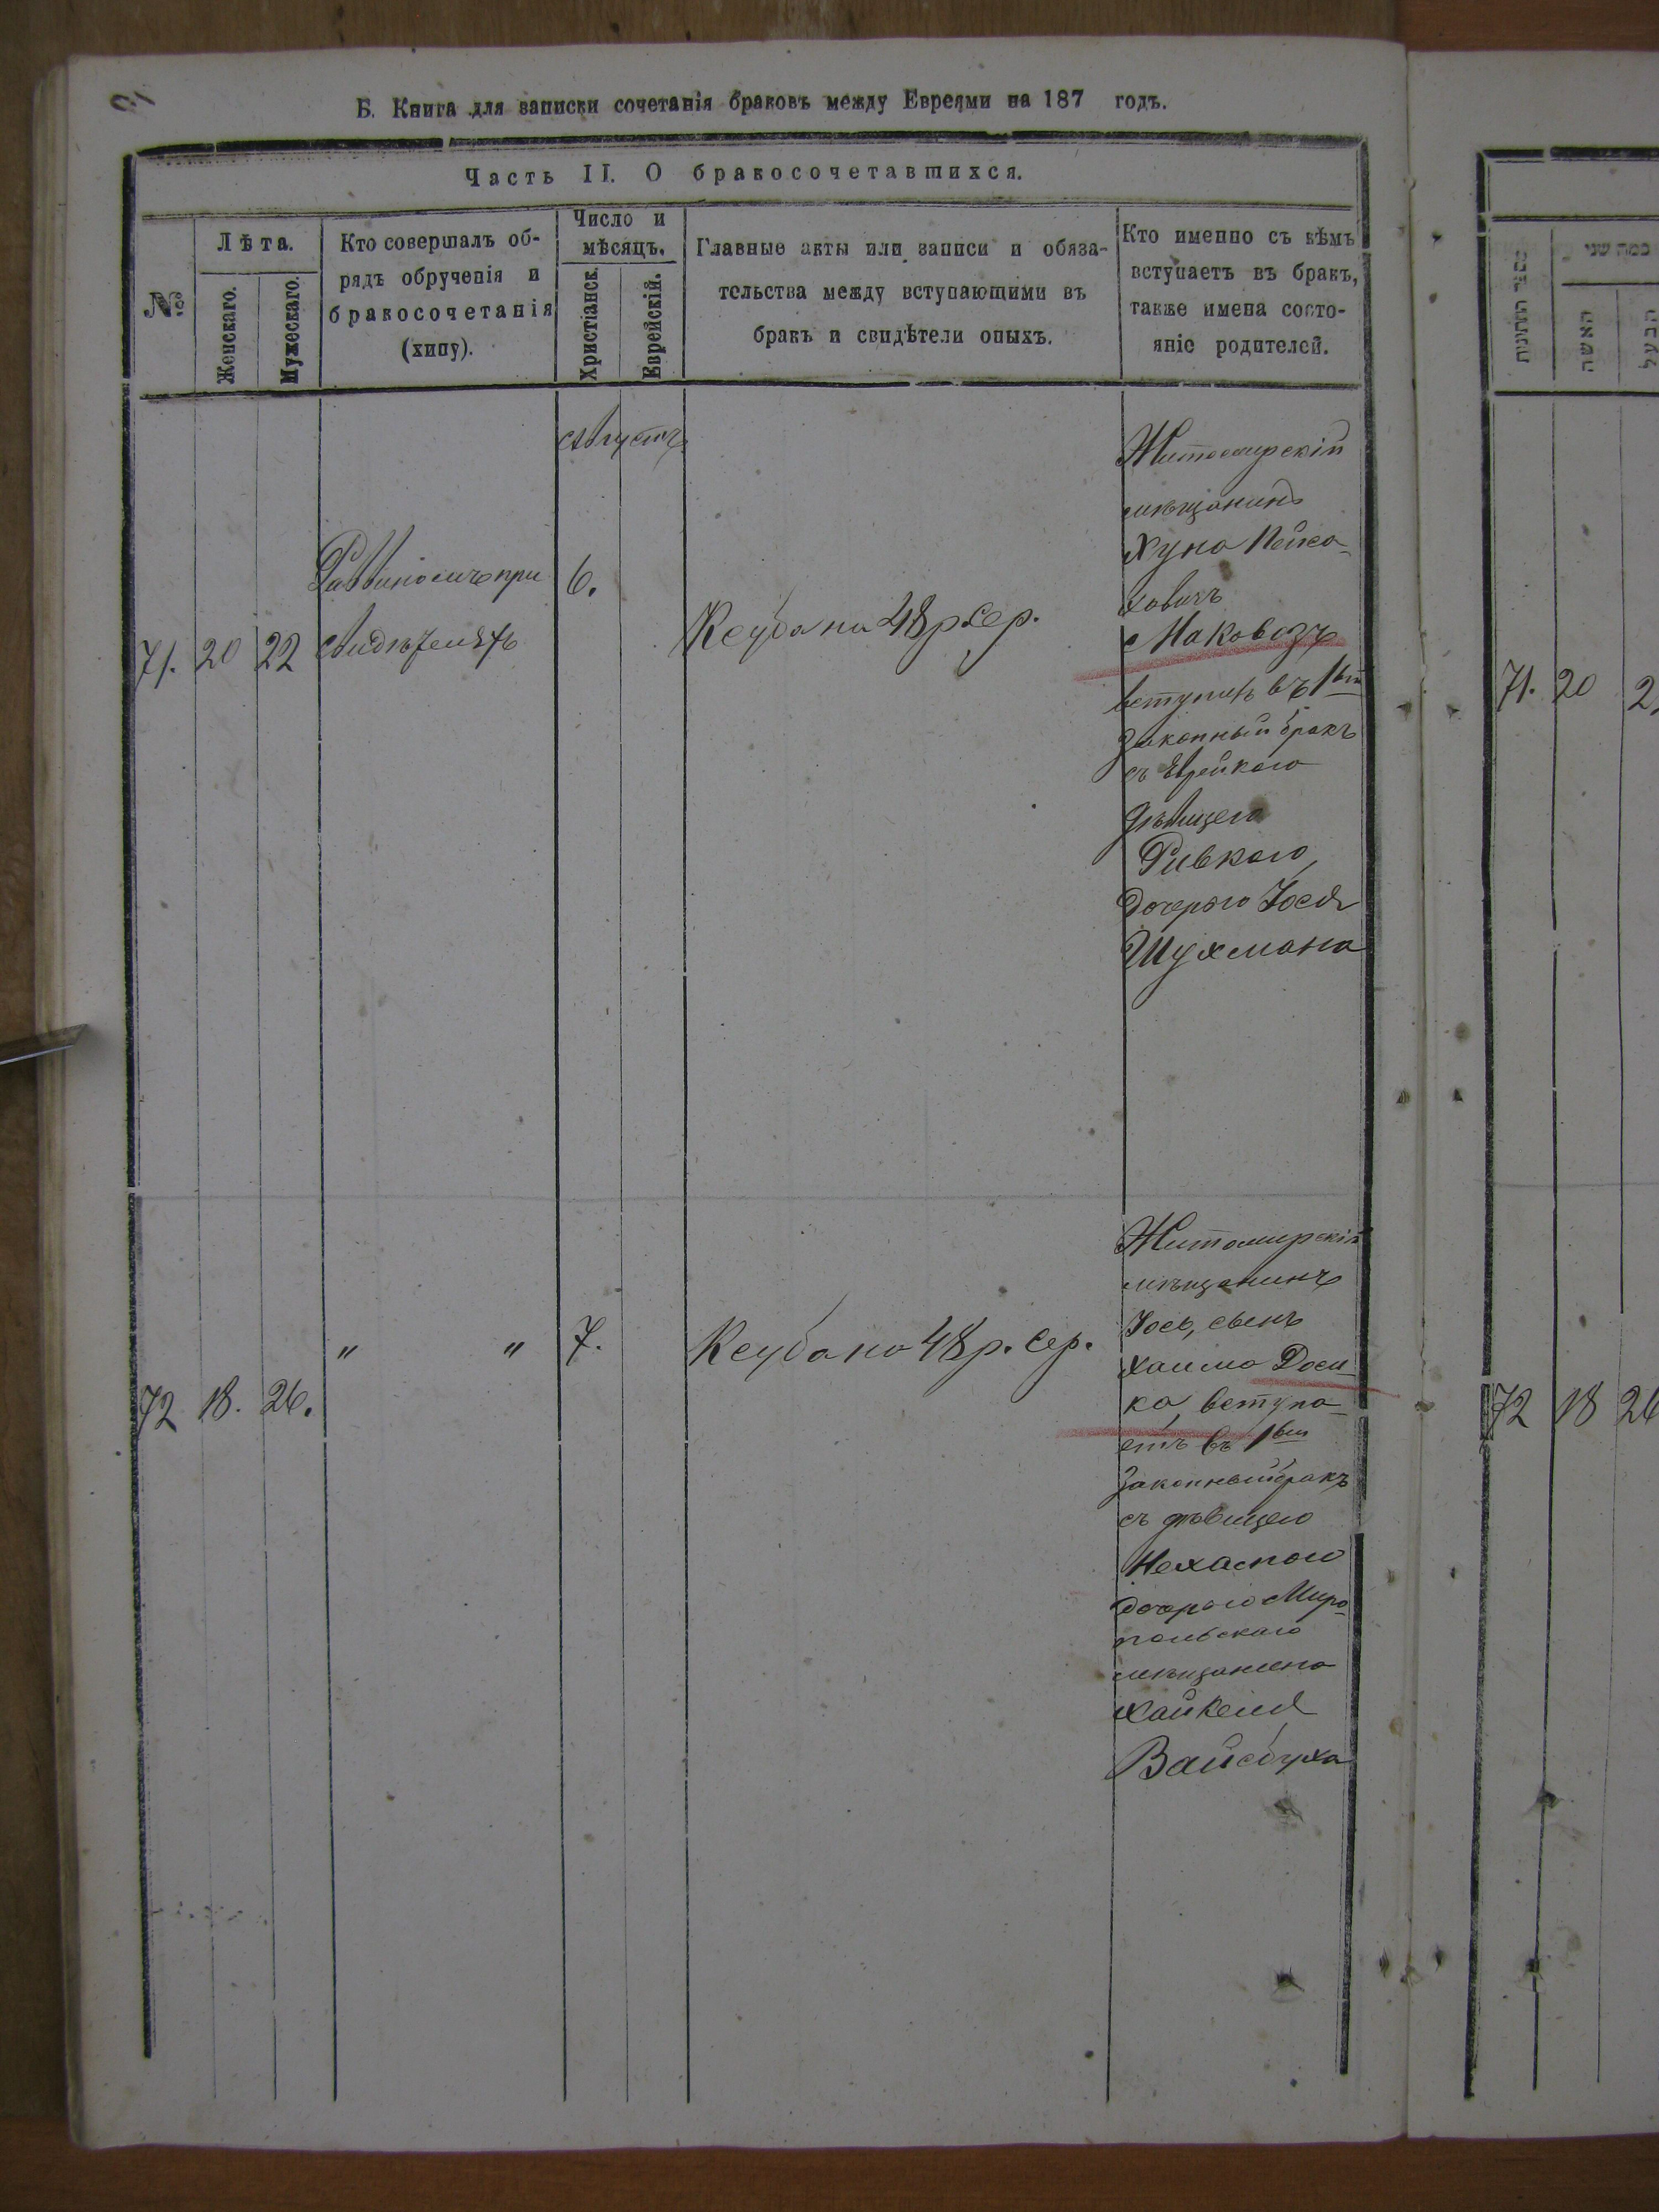 Б. Книга для записки сочетанія браковъ между Евреями на 187 годъ.
Часть II. О бракосочетавшихся.
№
Лѣта.
Женскаго.
Мужескаго.
Кто совершалъ об-
рядъ обрученія и
бракосочетанія
(хипу).
Число и
мѣсяцъ.
Христіанск.
Еврейскій.
Главные акты или записи и обяза-
тельства между вступающими въ
бракъ и свидѣтели оныхъ.
Кто именно съ кѣмъ
вступаетъ въ бракъ,
также имена состо-
яніе родителей.
Августъ
71. 20 22
Раввиномъ при
6.
Ксуба на 48 р сер.
Житомирскій
мѣщанинъ
Хуна Пейса-
ховичъ
Маковозъ
вступилъ въ 1вый
законный бракъ
съ Еврейкаю
дѣвицею
Ривкаю,
дочерью Іося
Шухмана
72 18. 26.
" "
7.
Ксуба на 48 р. сер.
Житомирскій
мѣщанинъ
Іось, сынъ
Хаима Доси-
ка, вступа-
етъ въ 1вый
законный бракъ
съ дѣвицею
дочерью Миро-
польскаго
мѣщанина
Хайкеля
Вайсбуха
מספר החתונות
כמה שני
האשה
הבעל
71. 20 2
72 18 26